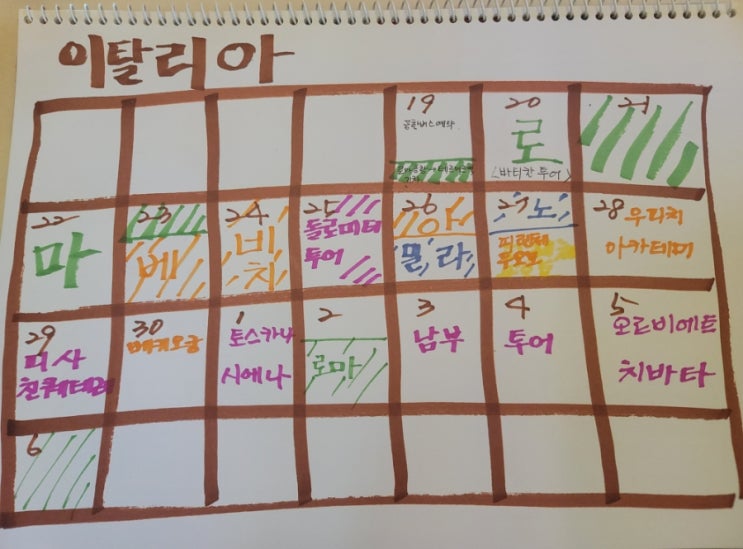 이탈리아
19
공항버스예약
20
로
<바티칸 투어>
21
22
마
23
베
24
네
치
25
돌로미티
투어
26
아
밀라
27
노
피렌체
두오모
28 우피치
아카데미
29
피사
친퀘테레
30
베키오궁
1
토스카나
시에나
2
로마
3
남부
4
투어
5
오르비에토
치비타
6